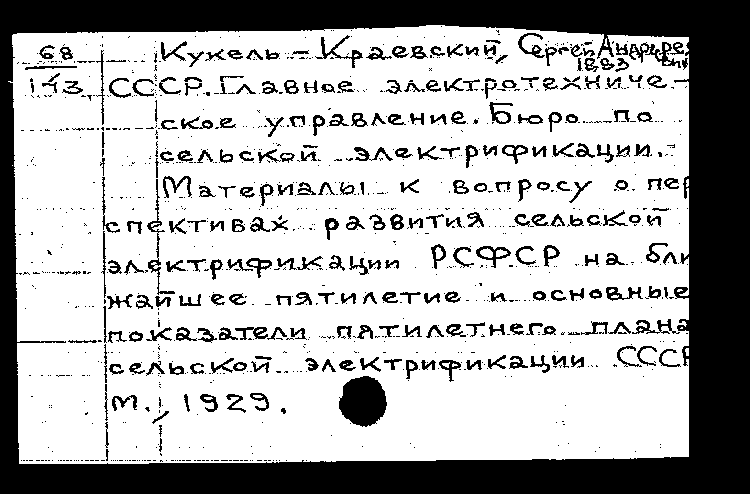 68 Кукель-Краевский, Сергей Андрере
1883
143 СССР. Главное электротехниче-
ское управление. Бюро по
сельской электрификации.
Материалы к вопросу о пер
спективах развития сельской
электрификации РСФСР на бли
жайшее пятилетие и основные
показатели пятилетнего плана
сельской электрификации СССР
М., 1929.